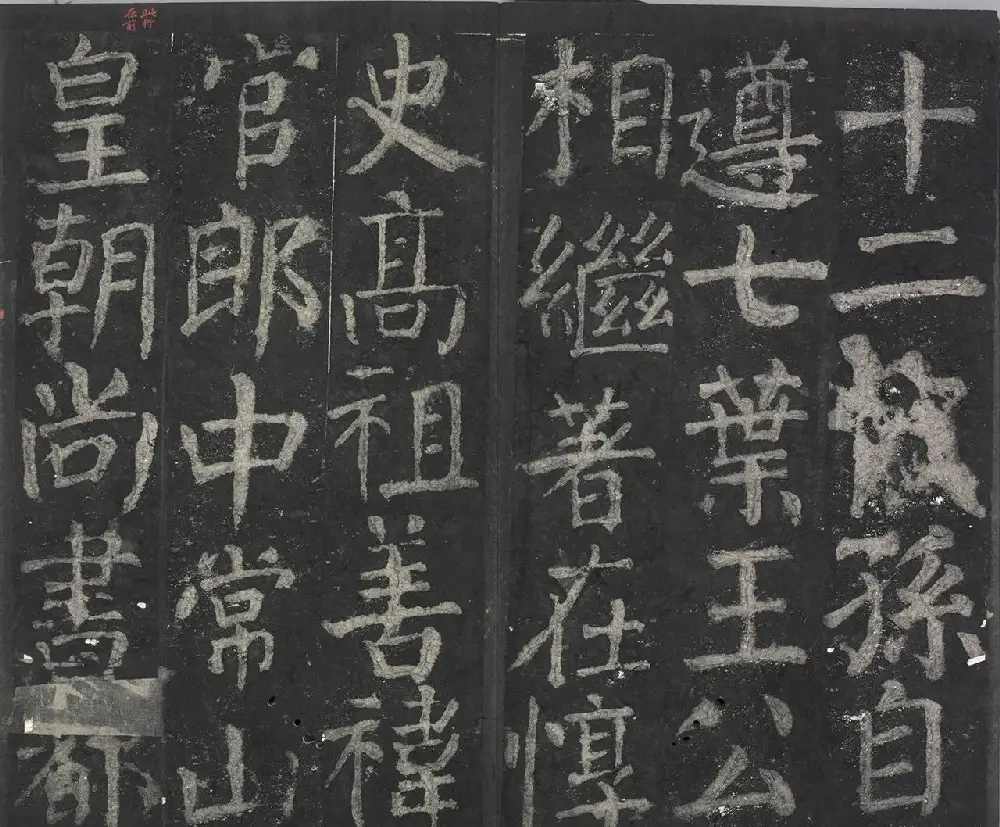 十二孫自
遵七葉王公
相繼著在惇
史高祖善禕
官郎中常山
皇朝尚書都
此行
在前